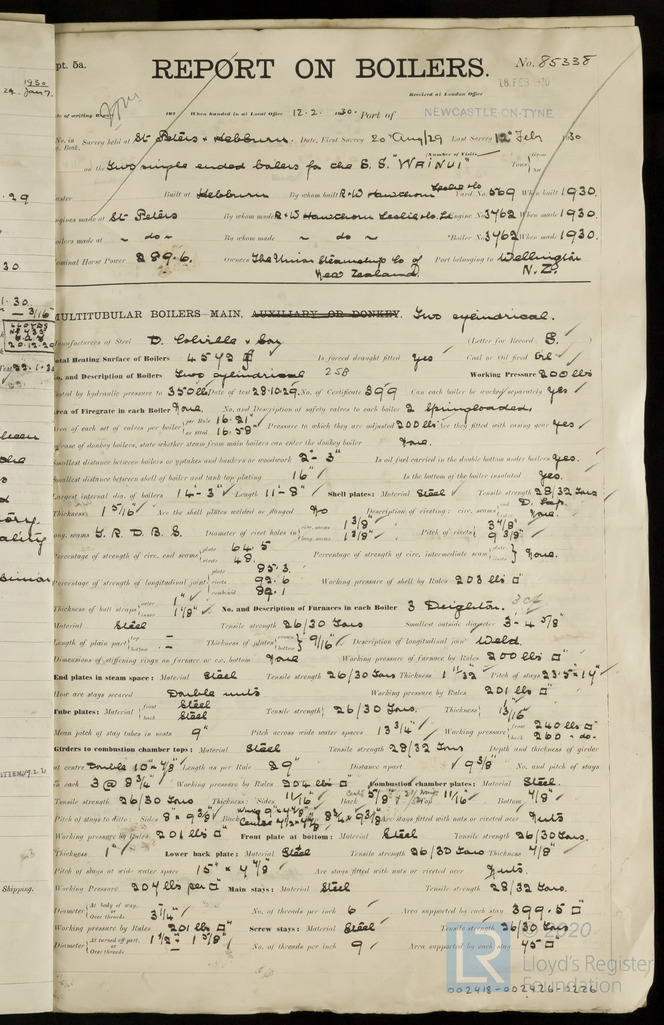 pt. 5a.
REPORT ON BOILERS.
No. 85338
18 FEB 1930
Received at London Office
When handed in at Local Office 12.2.1930. Port of NEWCASTLE-ON-TYNE
No. in Survey held at St Peters & Hebburn. Date, First Survey 20 Aug/29 Last Survey 12th Feby 1930
on the Two single ended boilers for the S.S. "WAINUI"
Built at Hebburn By whom built R&W Hawthorn Leslie & Co. Yard No. 569 When built 1930.
Engines made at St Peters By whom made R&W Hawthorn Leslie & Co. Ld Engine No. 3762 When made 1930.
Boilers made at - do - By whom made - do - Boiler No. 3762 When made 1930.
Nominal Horse Power 289.6. Owners The Union Steamship Co of New Zealand. Port belonging to Wellington N.Z.
MULTITUBULAR BOILERS MAIN, AUXILIARY OR DONKEY. Two cylindrical.
Manufacturers of Steel D. Colville & Coy (Letter for Record S.)
Total Heating Surface of Boilers 4572 Is forced draught fitted yes Coal or Oil fired oil
No. and Description of Boilers Two cylindrical 258 Working Pressure 200 lbs
Tested by hydraulic pressure to 350 lbs Date of test 28.10.29. No. of Certificate 399 Can each boiler be worked separately yes
Area of Firegrate in each Boiler None. No. and Description of safety valves to each boiler 2 Springloaded.
Area of each set of valves per boiler per Rule 16.21 as fitted 16.58 Pressure to which they are adjusted 200 lbs Are they fitted with easing gear yes
In case of donkey boilers, state whether steam from main boilers can enter the donkey boiler None.
Smallest distance between boilers or uptakes and bunkers or woodwork 2'-3" Is oil fuel carried in the double bottom under boilers yes.
Smallest distance between shell of boiler and tank top plating 16" Is the bottom of the boiler insulated yes.
Largest internal dia. of boilers 14'-3" Length 11'-8" Shell plates: Material Steel Tensile strength 28/32 Tons
Thickness 1 5/16" Are the shell plates welded or flanged No Description of riveting: circ. seams end D. Lap. None.
long. seams T.R.D.B.S. Diameter of rivet holes in circ. seams 1 3/8" long. seams 1 3/8" Pitch of rivets 3 7/8" 9 3/8"
Percentage of strength of circ. end seams plate 64.5 rivets 48. Percentage of strength of circ. intermediate seam plate rivets None.
Percentage of strength of longitudinal joint plate 85.3. rivets 92.6 combined 89.1 Working pressure of shell by Rules 203 lbs □"
Thickness of butt straps outer 1" inner 1 1/8" No. and Description of Furnaces in each Boiler 3 Deighton.
Material Steel Tensile strength 26/30 Tons Smallest outside diameter 3'-4 5/8"
Length of plain part top - bottom - Thickness of plates crown bottom 9/16" Description of longitudinal joint Weld.
Dimensions of stiffening rings on furnace or c.c. bottom None Working pressure of furnace by Rules 200 lbs □"
End plates in steam space: Material Steel Tensile strength 26/30 Tons Thickness 1 11/32" Pitch of stays 23.5" x 17"
How are stays secured Double nuts Working pressure by Rules 201 lbs □"
Tube plates: Material front Steel back Steel Tensile strength 26/30 Tons. Thickness 13/16"
Mean pitch of stay tubes in nests 9" Pitch across wide water spaces 13 3/4" Working pressure front 240 lbs □" back 260 - do -
Girders to combustion chamber tops: Material Steel Tensile strength 28/32 Tons Depth and thickness of girder
at centre Double 10" x 7/8" Length as per Rule 29" Distance apart 9 3/8" No. and pitch of stays
in each 3 @ 8 3/4" Working pressure by Rules 204 lbs □" Combustion chamber plates: Material Steel.
Tensile strength 26/30 Tons Thickness: Sides 11/16" Back 5/8" Top 11/16" Bottom 7/8"
Pitch of stays to ditto: Sides 8" x 9 3/8" Back Top 8 3/4" x 9 3/8" Are stays fitted with nuts or riveted over Nuts
Working pressure by Rules 201 lbs □" Front plate at bottom: Material Steel Tensile strength 26/30 Tons.
Thickness 1" Lower back plate: Material Steel Tensile strength 26/30 Tons Thickness 7/8"
Pitch of stays at wide water space 15" x 7 7/8" Are stays fitted with nuts or riveted over Nuts.
Working Pressure 204 lbs per □" Main stays: Material Steel Tensile strength 28/32 Tons.
Diameter At body of stay, or Over threads 3 1/4" No. of threads per inch 6 Area supported by each stay 399.5 □"
Working pressure by Rules 201 lbs □" Screw stays: Material Steel Tensile strength 26/30 Tons
Diameter At turned off part, or Over threads 1 1/2" - 1 5/8" No. of threads per inch 9 Area supported by each stay 75 □"
Shipping.
© 2020
LR
Lloyd's Register
Foundation
002418-002426-0226